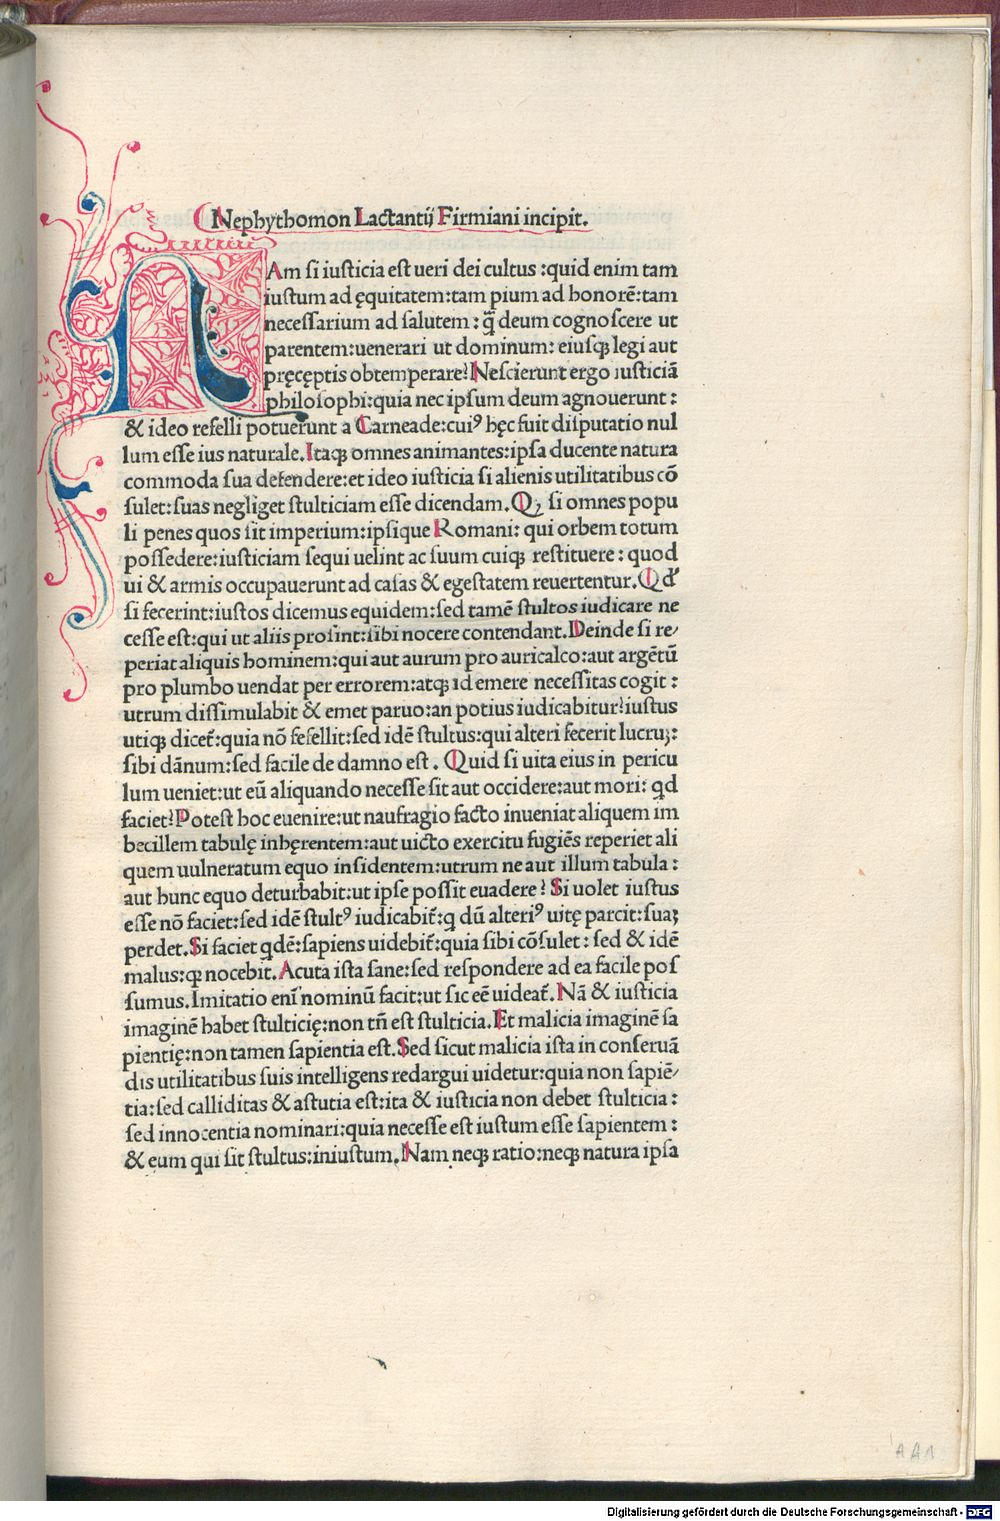 Nephythomon Lactantij Firmiani incipit.
NAm si iusticia est ueri dei cultus :quid enim tam
iustum ad ęquitatem:tam pium ad honorē:tam
necessarium ad salutem : q̄̃ deum cognoscere ut
parentem:uenerari ut dominum: eiusqꝫ legi aut
pręceptis obtemperare? Nescierunt ergo iusticiā
philosophi:quia nec ipsum deum agnouerunt :
& ideo refelli potuerunt a Carneade:cuiꝰ hęc fuit disputatio nul
lum esse ius naturale. Itaqꝫ omnes animantes:ipsa ducente natura
commoda sua defendere:et ideo iusticia si alienis utilitatibus cō
sulet:suas negliget stulticiam esse dicendam. Qꝫ si omnes popu
li penes quos sit imperium:ipsique Romani: qui orbem totum
possedere:iusticiam sequi uelint ac suum cuiqꝫ restituere : quod
ui & armis occupauerunt ad casas & egestatem reuertentur. Qd̕
si fecerint:iustos dicemus equidem:sed tamē stultos iudicare ne
cesse est:qui ut aliis prosint:sibi nocere contendant. Deinde si re/
periat aliquis hominem:qui aut aurum pro auricalco:aut argētū
pro plumbo uendat per errorem:atqꝫ id emere necessitas cogit :
utrum dissimulabit & emet paruo:an potius iudicabitur?iustus
utiqꝫ dicet̄:quia nō fefellit:sed idē stultus:qui alteri fecerit lucruꝫ:
sibi dānum:sed facile de damno est. Quid si uita eius in pericu
lum ueniet:ut eū aliquando necesse sit aut occidere:aut mori: qd
faciet?Potest hoc euenire:ut naufragio facto inueniat aliquem im
becillem tabulę inhęrentem:aut uicto exercitu fugiēs reperiet ali
quem uulneratum equo insidentem:utrum ne aut illum tabula :
aut hunc equo deturbabit:ut ipse possit euadere? Si uolet iustus
esse nō faciet:sed idē stultꝰ iudicabit̄:q dū alteriꝰ uitę parcit:suaꝫ
perdet. Si faciet qdē:sapiens uidebit̄:quia sibi cōsulet : sed & idē
malus:qꝫ nocebit. Acuta ista sane:sed respondere ad ea facile pos
sumus. Imitatio enī nominū facit:ut sic eē uideat̄. Nā & iusticia
imaginē habet stulticię:non tn̄ est stulticia. Et malicia imaginē sa
pientię:non tamen sapientia est. Sed sicut malicia ista in conseruā
dis utilitatibus suis intelligens redargui uidetur:quia non sapiē/
tia:sed calliditas & astutia est:ita & iusticia non debet stulticia :
sed innocentia nominari:quia necesse est iustum esse sapientem :
& eum qui sit stultus:iniustum. Nam neqꝫ ratio:neqꝫ natura ipsa
Digitalisierung gefördert durch die Deutsche Forschungsgemeinschaft - DFG